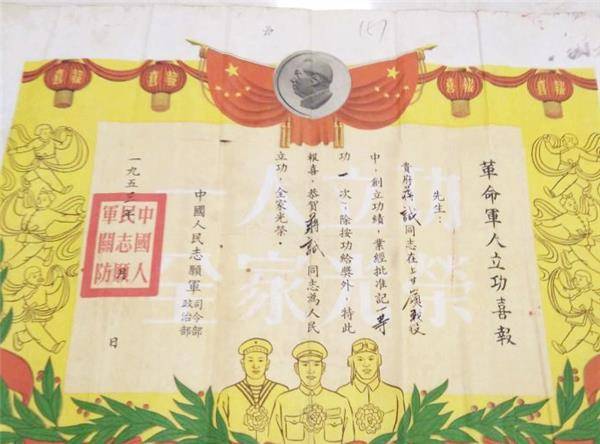 革命軍人立功喜報
先生：
貴府蔣誠同志在上甘嶺戰役
中，創立功績，業經批准記一等
功一次；除按功給獎外，特此
報喜，恭賀蔣誠同志為人民
立功，全家光榮。
中國人民志願軍
司令部
政治部
一九五三年
月
日
中國人
民志願
軍關防
一人立功
全家光榮
喜報
喜報
喜報
喜報